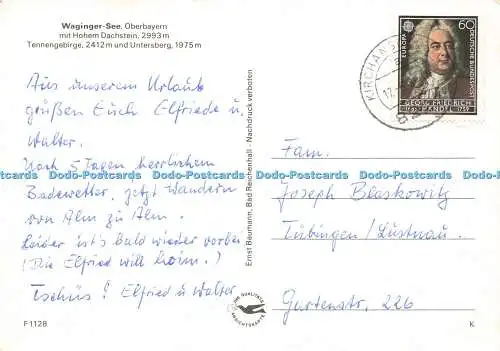 Waginger-See, Oberbayern
mit Hohem Dachstein, 2993 m
Tennengebirge, 2412 m und Untersberg, 1975 m
Aus unserem Urlaub
grüßen Euch Elfriede u.
Walter.
Nach 5 Tagen herrlichem
Badewetter, jetzt Wandern
von Alm zu Alm.
Leider ist's bald wieder vorbei
(Die Elfried will heim.)
Tschüs! Elfried u Walter
F1128
Ernst Baumann, Bad Reichenhall - Nachdruck verboten
KIRCHAN
17.
EUROPA
60
DEUTSCHE BUNDESPOST
GEORG FRIEDRICH
HÄNDEL
Fam.
Joseph Blaskowitz
Tübingen/Lustnau.
Gartenstr. 226
K
Dodo-Postcards Dodo-Postcards Dodo-Postcards Dodo-Postcards